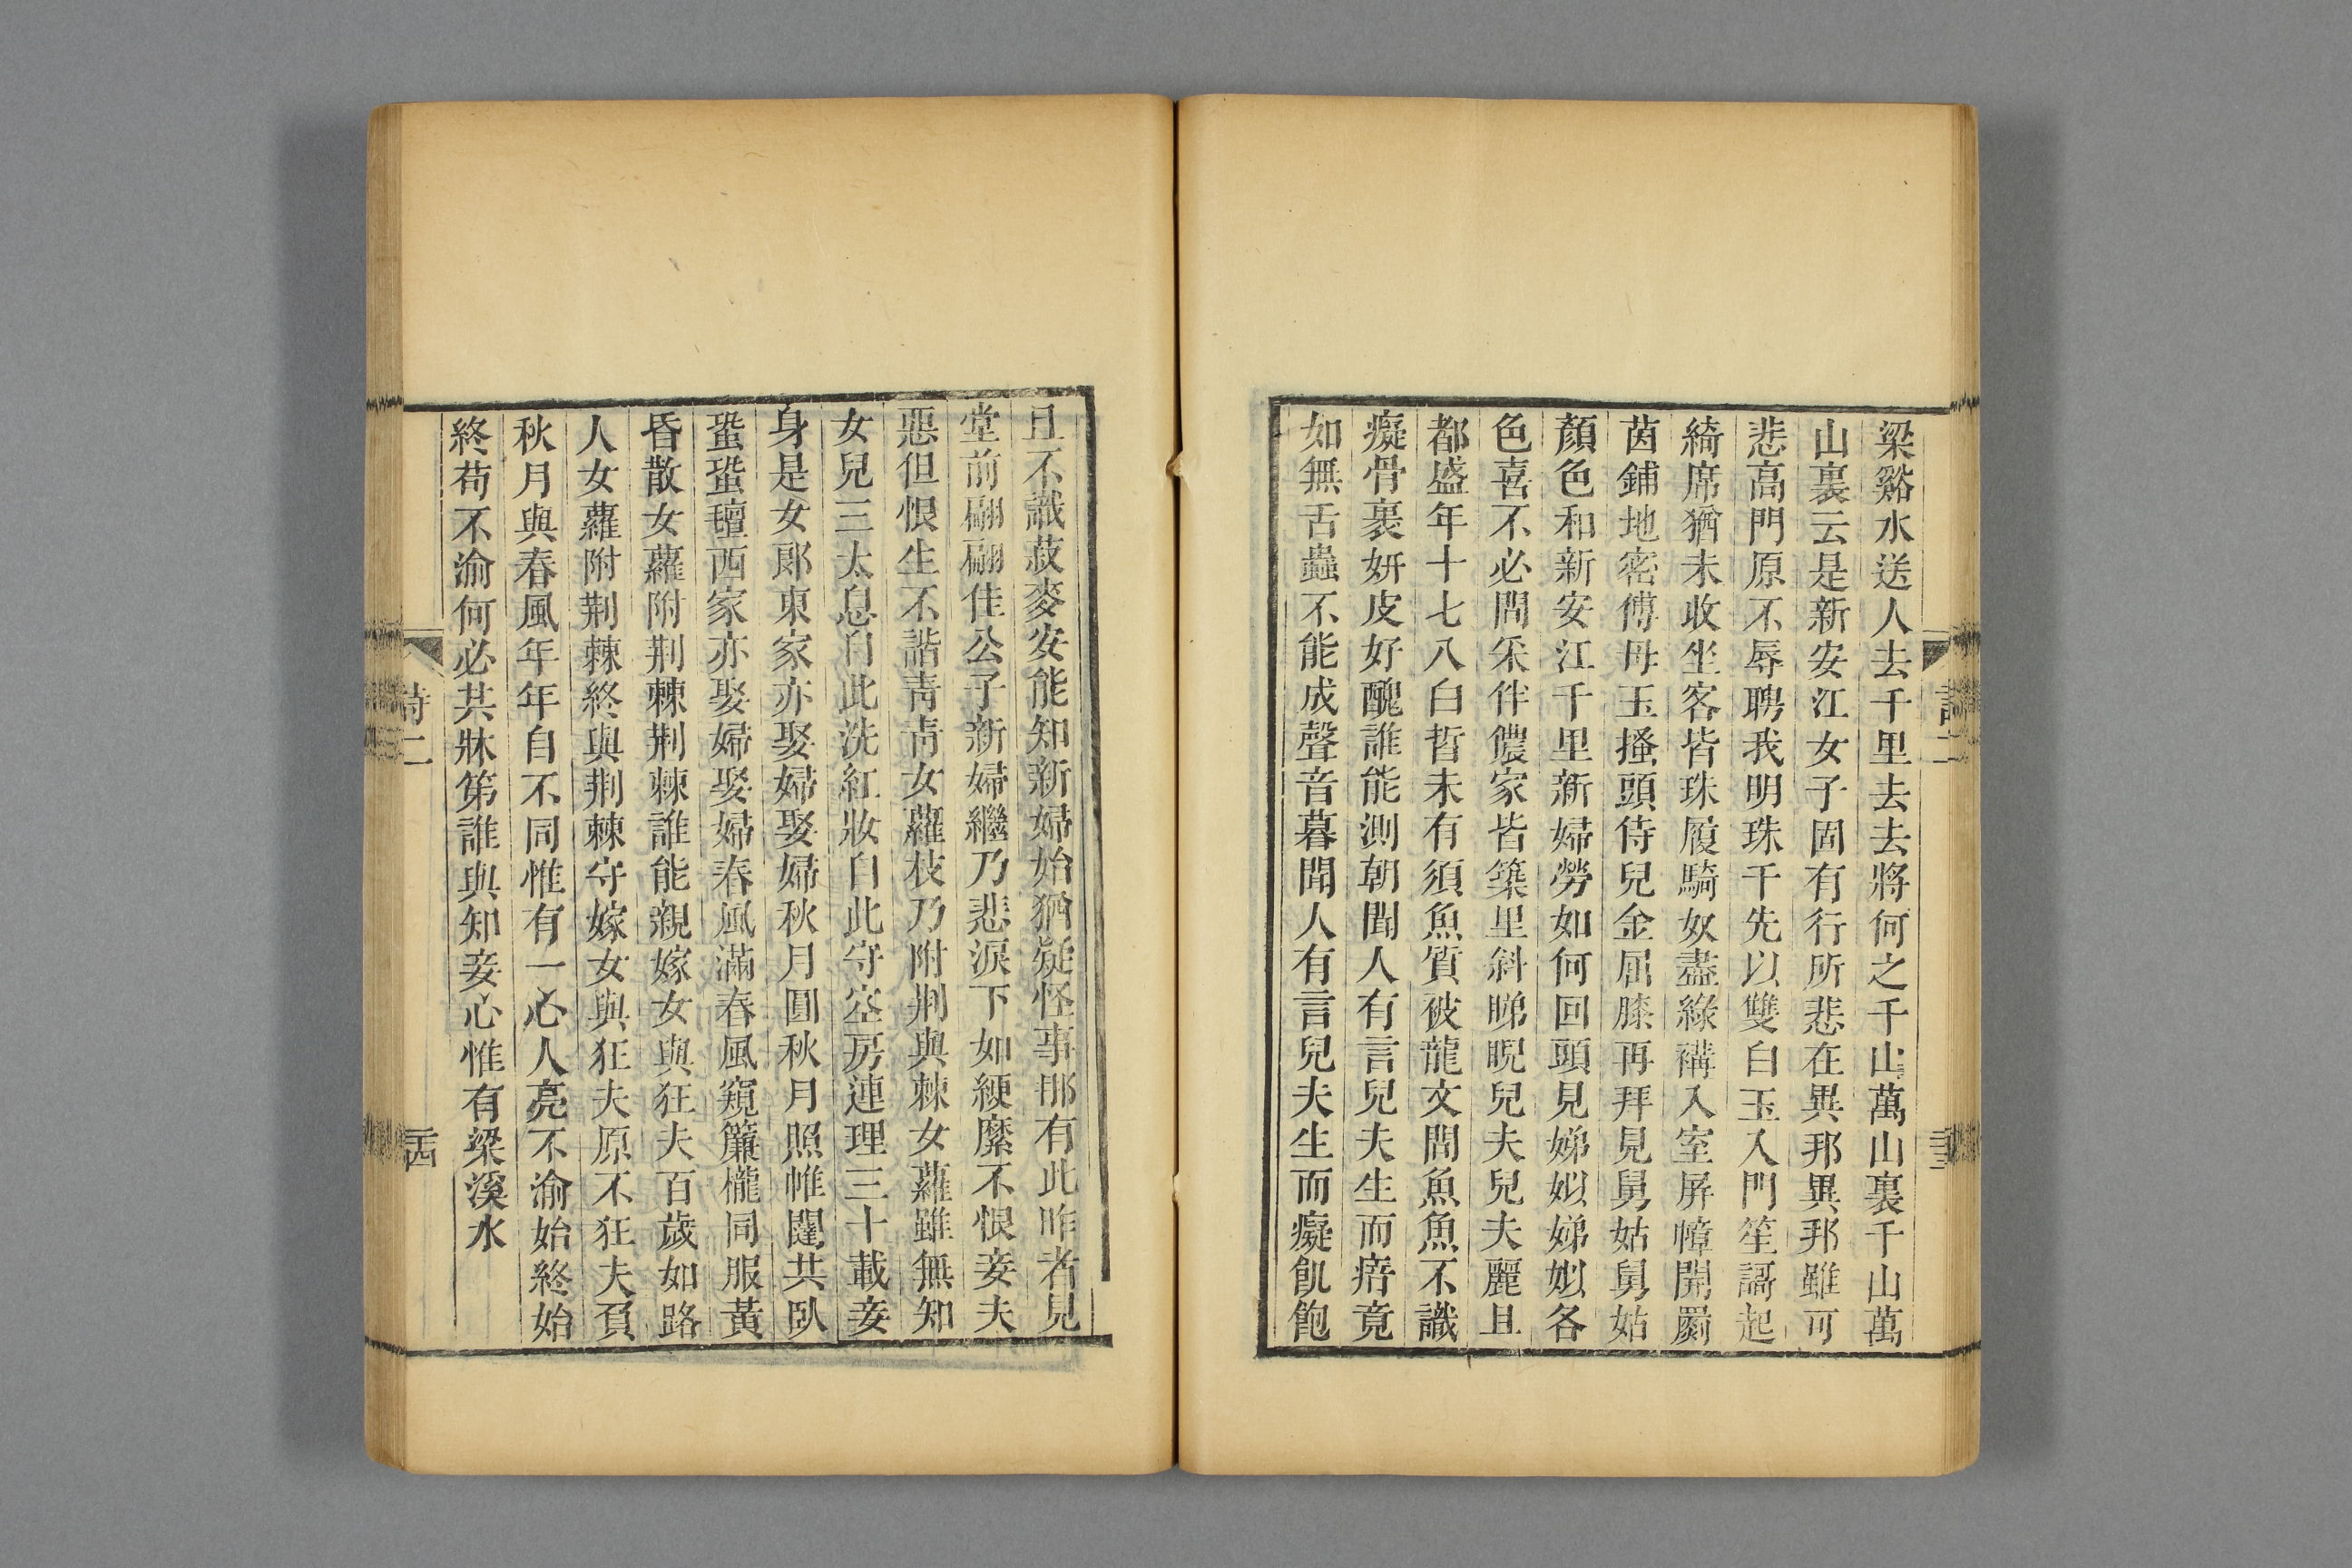 梁谿水送人去千里去去將何之千山萬山裏千山萬
山裏云是新安江女子固有行所悲在異邦異邦雖可
悲高門原不辱聘我明珠千先以雙白玉入門笙謌起
綺席猶未收坐客皆珠履騎奴盡綠褠入室屏幛開罽
茵鋪地密傅母玉搔頭侍兒金屈膝再拜見舅姑舅姑
顏色和新安江千里新婦勞如何回頭見娣姒娣姒各
色喜不必問采伴儂家皆築里斜睇睨兒夫兒夫麗且
都盛年十七八白晳未有須魚質被龍文間魚魚不識
癡骨裹妍皮好醜誰能測朝聞人有言兒夫生而瘖竟
如無舌蟲不能成聲音暮聞人有言兒夫生而癡飢飽
詩二
且不識菽麥安能知新婦始猶疑怪事那有此昨者見
堂前翩翩佳公子新婦繼乃悲淚下如綆縻不恨妾夫
惡但恨生不諧靑靑女蘿枝乃附荆與棘女蘿雖無知
女兒三太息自此洗紅妝自此守空房連理三十載妾
身是女郎東家亦娶婦娶婦秋月圓秋月照帷闥共臥
蛩蛩氊西家亦娶婦娶婦春風滿春風窺簾櫳同服黃
昏散女蘿附荆棘荆棘誰能親嫁女與狂夫百歲如路
人女蘿附荆棘終與荆棘守嫁女與狂夫原不狂夫負
秋月與春風年年自不同惟有一心人亮不渝始終始
終苟不渝何必共牀第誰與知妾心惟有梁溪水
詩二